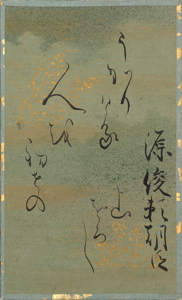 源俊頼朝臣
うかり
ける
人を
初せの
山おろし